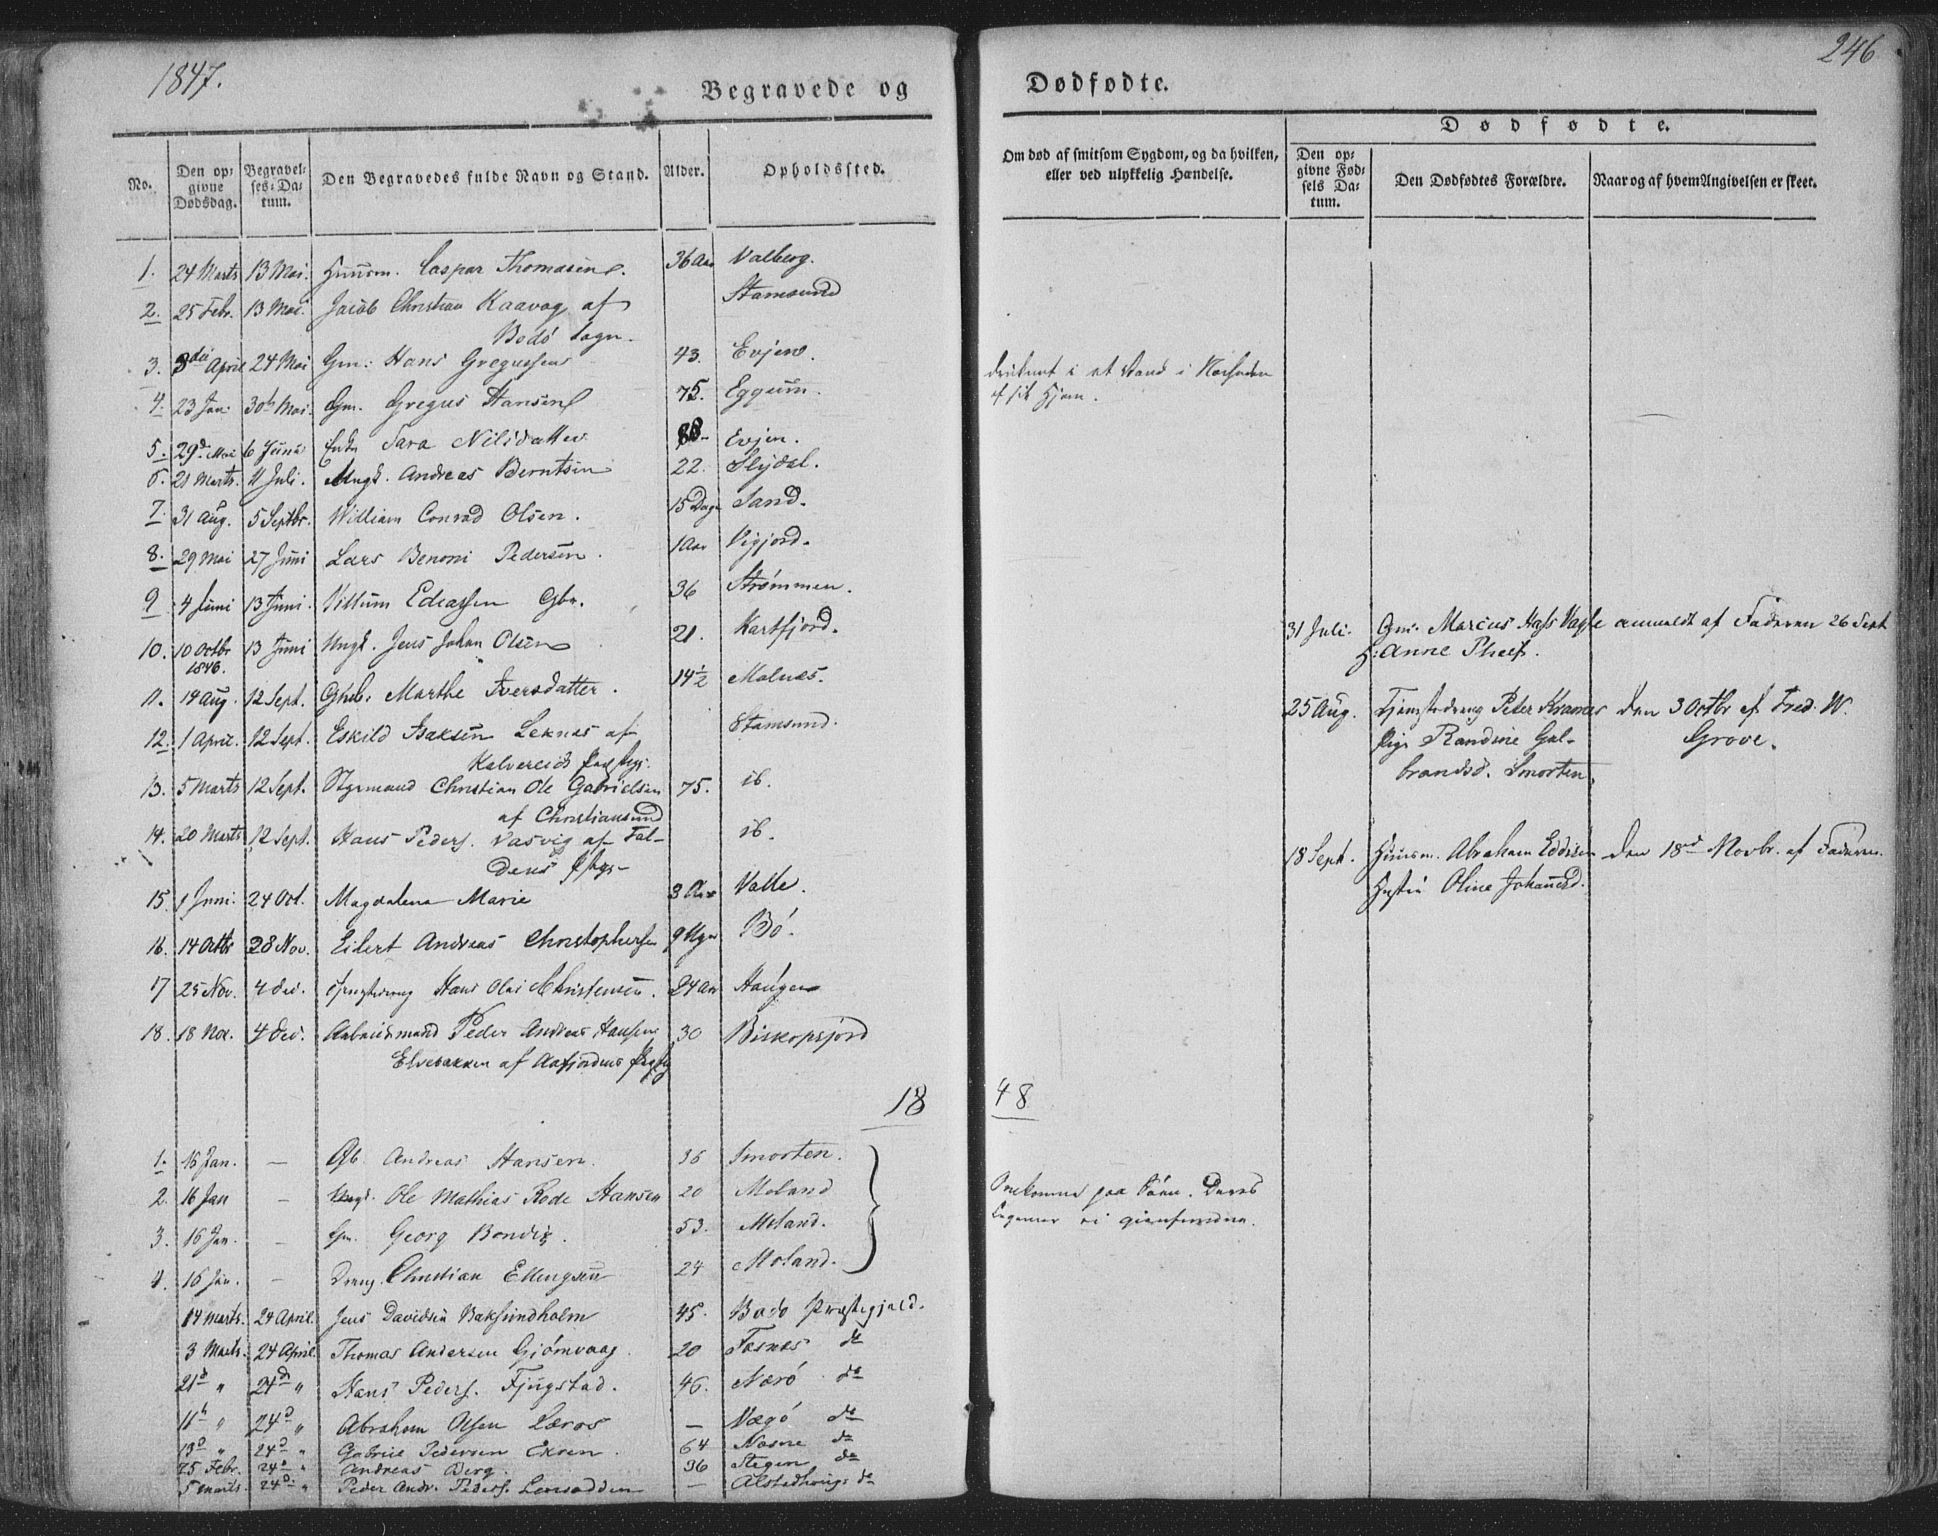 1847.
246
Begravede og
Dødfødte.
No.
Den opgivne Dødsdag.
Begravelses-Datum.
Den Begravedes fulde Navn og Stand.
Alder.
Opholdssted.
Om død af smitsom Sygdom, og da hvilken, eller ved ulykkelig Hændelse.
Dødfødte.
Den opgivne Fødsels Datum.
Den Dødfødtes Forældre.
Naar og af hvem Angivelsen er skeet.
1. 24 Marts 13 Mai. Huusm. Caspar Thomasen. 36 Aar Valberg.
2. 25 Febr. 13 Mai. Jacob Christian Kaavog af Stamsund
Bodö Sogn.
3. April 24 Mai Gm: Hans Gregussen 43. Evjen.
4. 23 Jan. 30 Mai. Gm. Gregus Hansen 75. Eggum.
af sit Hjem.
5. 29 Mai 6 Juni Enke Sara Nilsdatter 88 Evjen.
6. 21 Marts. 11 Juli. Ungk. Andreas Berntsen 22. Slydal.
7. 31 Aug. 5 Septbr. William Conrad Olsen. 15 Dage Sand.
8. 29 Mai 27 Juni Lars Benoni Pedersen. 1 Aar Vigjord.
9 4 Juni 13 Juni. Villum Gbr. 36 Strømmen.
10. 10 Octbr 1846. 13 Juni Ungk. Jens Johan Olsen 21. Kartfjord.
31 Juli. Gm: Marcus Hass Vagle anmeldt af Faderen 26 Sept
H: Anne
11. 14 Aug. 12 Sept. Marthe Iversdatter. 14½ Molnæs.
25 Aug. Peter Kramer den 3 Octbr af Fred. W.
Pige Randine Gulbrandsd. Smorten. Grove.
12. 1 April. 12 Sept. Eskild Isaksen Leknes af Stamsund.
13. 5 Marts 12 Sept. Styrmand Christian Ole Gabrielsen 75. ib.
af Christiansund
14. 20 Marts 12 Sept. Hans Peders. Vasvig af ib.
18 Sept. Huusm. Abraham den 18d Novbr. af Faderen.
Hustru Oline Johansd.
15. 1 Juni. 24 Oct. Magdalena Marie 3 Aar Valle.
16. 14 Octbr 28 Nov. Eilert Andreas Christophersen 9 Uger Bö.
17 25 Nov. 4 Dec. Hans Olai Christensen. 24 Aar Haugen
18. 18 Nov. 4 Dec. Arbeidsmand Peder Andreas Hansen 30 Biskopsjord
Elvebakken af Aafjordens
18
48
1. 16 Jan. — Gb. Andreas Hansen. 36 Smorten.
2. 16 Jan — Ungk. Ole Mathias Rode Hansen 20 Moland
Omkomne paa Söen. Deres
3. 16 Jan. — Gm. Georg 53. Moland.
Legemer ei gienfundne.
4. 16 Jan. — Dreng. Christian Ellingsen 24 Moland.
14 Marts. 24 April. Jens Davidsen Baksundholm 45. Bodø Præstegjeld.
3 Marts. 24 April. Thomas Andersen Gjömvaag. 20 Fosnes do
21d " 24d " Hans Peders. Fjugstad. 46. Nærö do
24d " Abraham Olsen Læros — Vægö do
24d " Gabriel Pedersen 64 Nesne do
25 Febr. 24d " Andreas Berg. 36 Stegen do
5 Marts. 24d " Peder Andr. Peders. — Alstedhoug: do